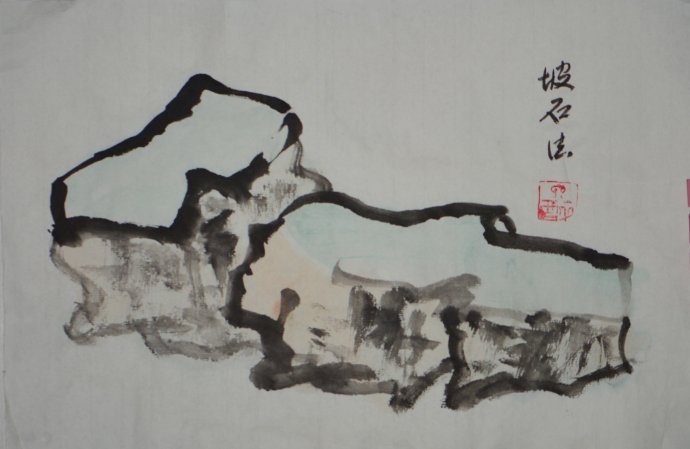 坡石法